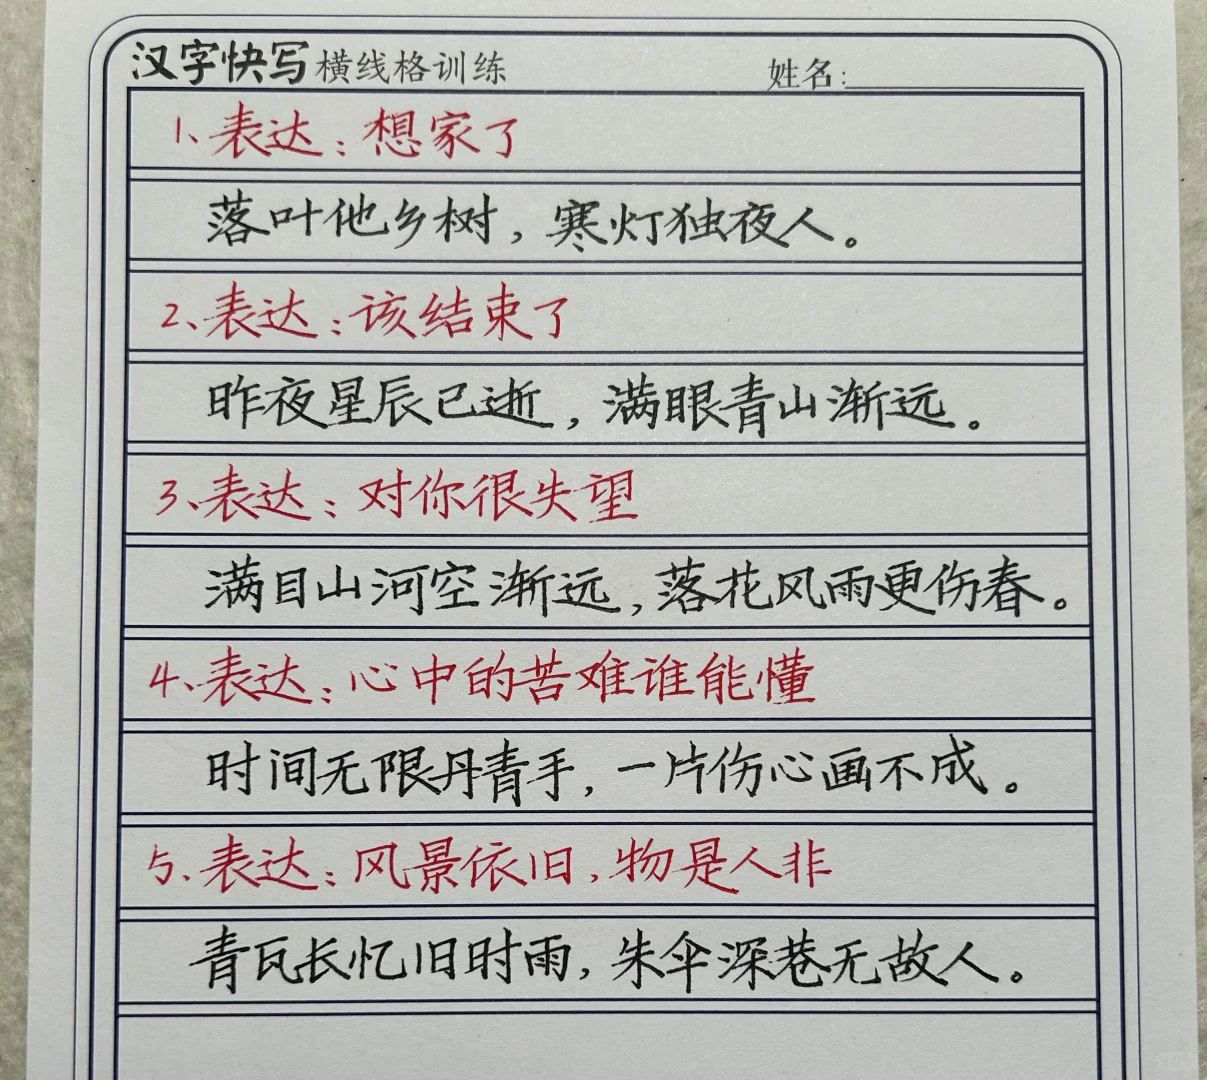 汉字快写横线格训练 姓名:
1、表达：想家了
落叶他乡树，寒灯独夜人。
2、表达：该结束了
昨夜星辰已逝，满眼青山渐远。
3、表达：对你很失望
满目山河空渐远，落花风雨更伤春。
4、表达：心中的苦难谁能懂
时间无限丹青手，一片伤心画不成。
5、表达：风景依旧，物是人非
青瓦长忆旧时雨，朱伞深巷无故人。